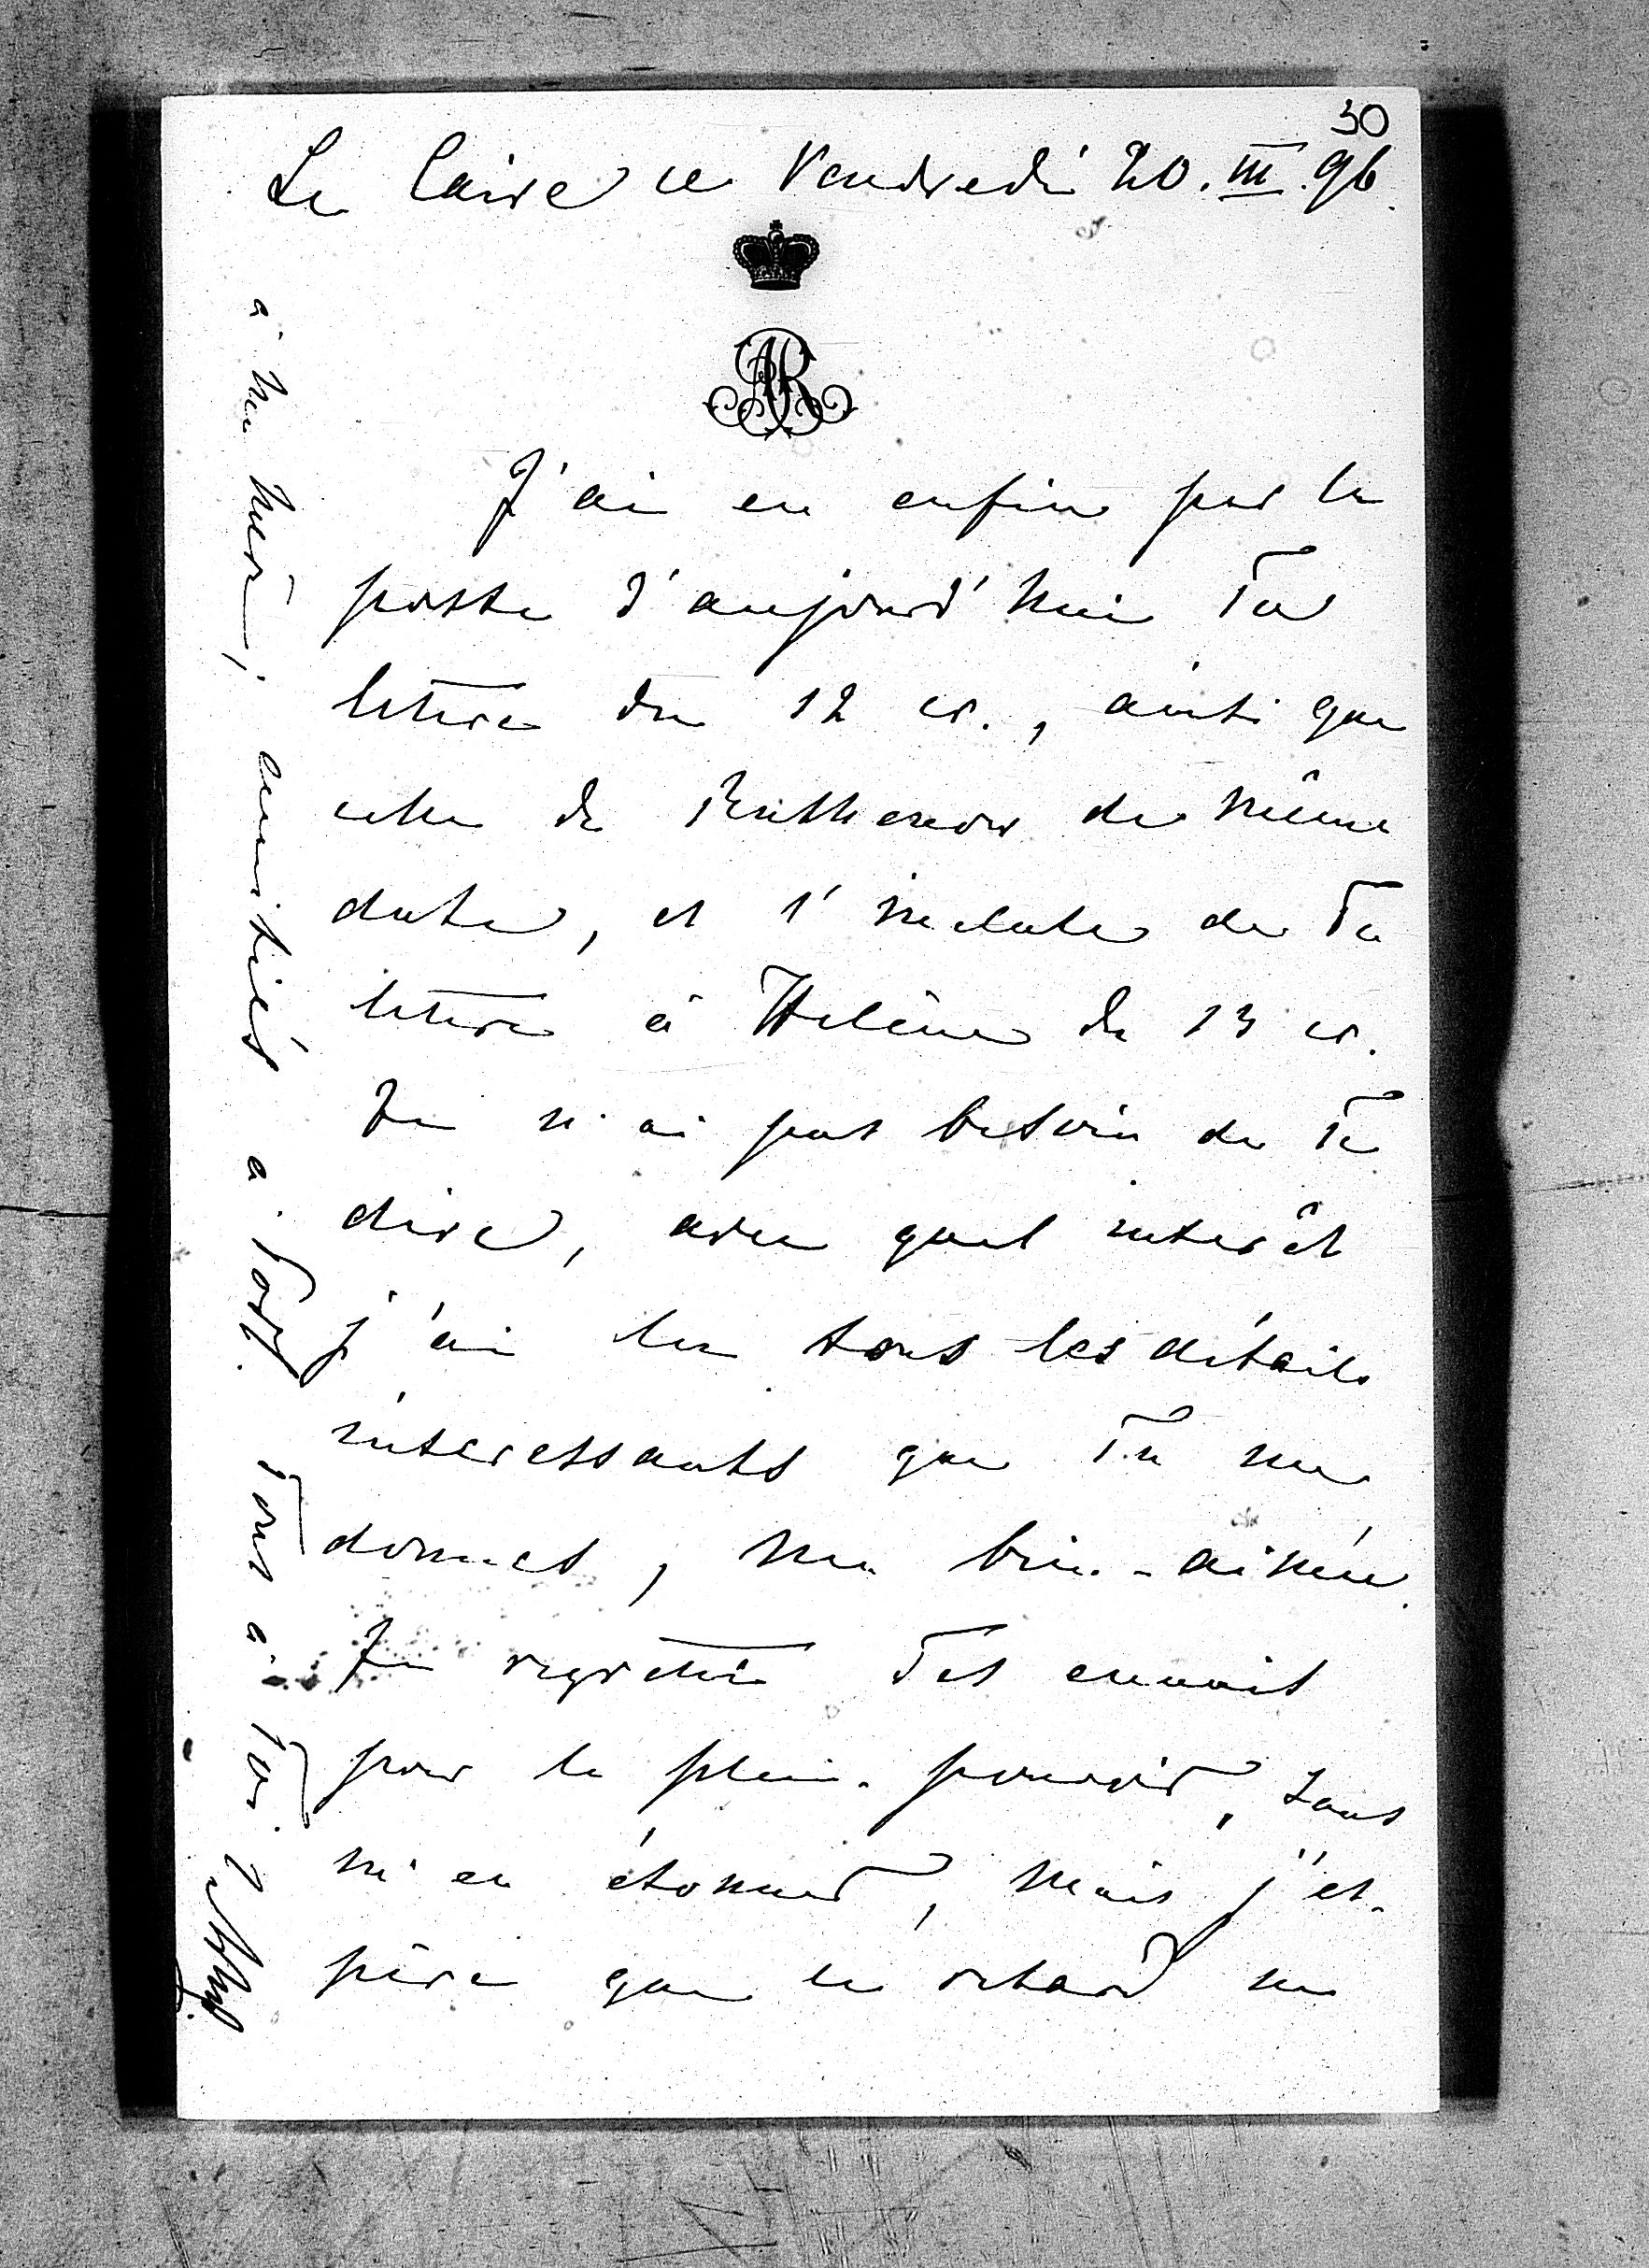 30
Le Caire ce Vendredi 20.III.96.
AR
J'ai eu enfin par la
poste d'aujourd'hui Ta
lettre du 12 cr., ainsi que
celle de de même
date, et l'incluse de Ta
lettre à Hélène du 13 cr.
Je n'ai pas besoin de Te
dire, avec quel interêt
j'ai lu tous les détails
interessants que Tu me
donnes, ma bien-aimée.
Je regrette Tes ennuis
pour le plein-pouvoir, sans
m'en étonner, mais j'es-
père que ce retard ne
à ma mère, amitiés à Tout à Toi